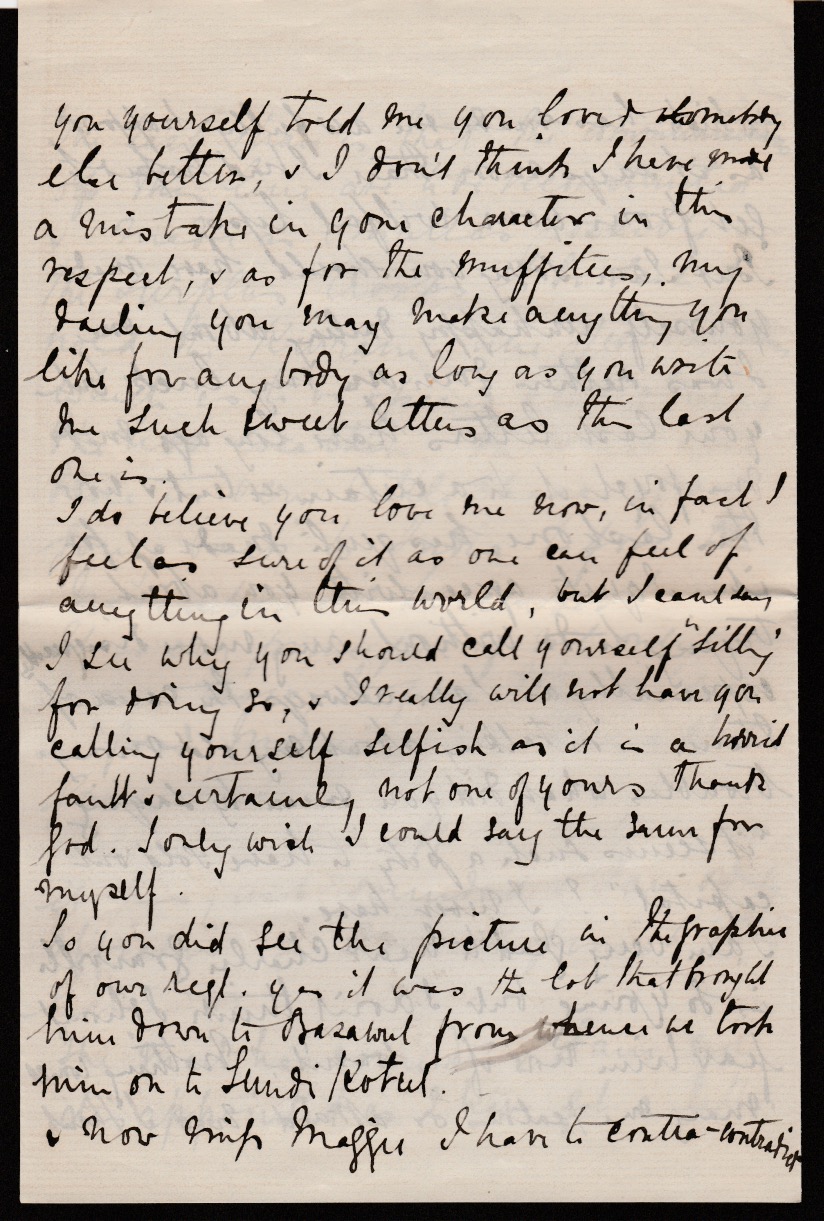 you yourself told me you loved somebody
else better, & I don't think I have made
a mistake in your character in this
respect, & as for the muffitees, my
darling you may make anything you
like for anybody as long as you write
me such sweet letters as this last
one is.
I do believe you love me now, in fact I
feel as sure of it as one can feel of
anything in this world, but I cant say
I see why you should call yourself "silly"
for doing so, & I really will not have you
calling yourself selfish as it is a horrid
fault & certainly not one of yours thank
god. I only wish I could say the same for
myself.
So you did see the picture in The graphic
of our regt. yes it was the lot that brought
him down to Basawul from whence we took
him on to Lundi Kotul.
& now miss Maggie I have to contra-contradict